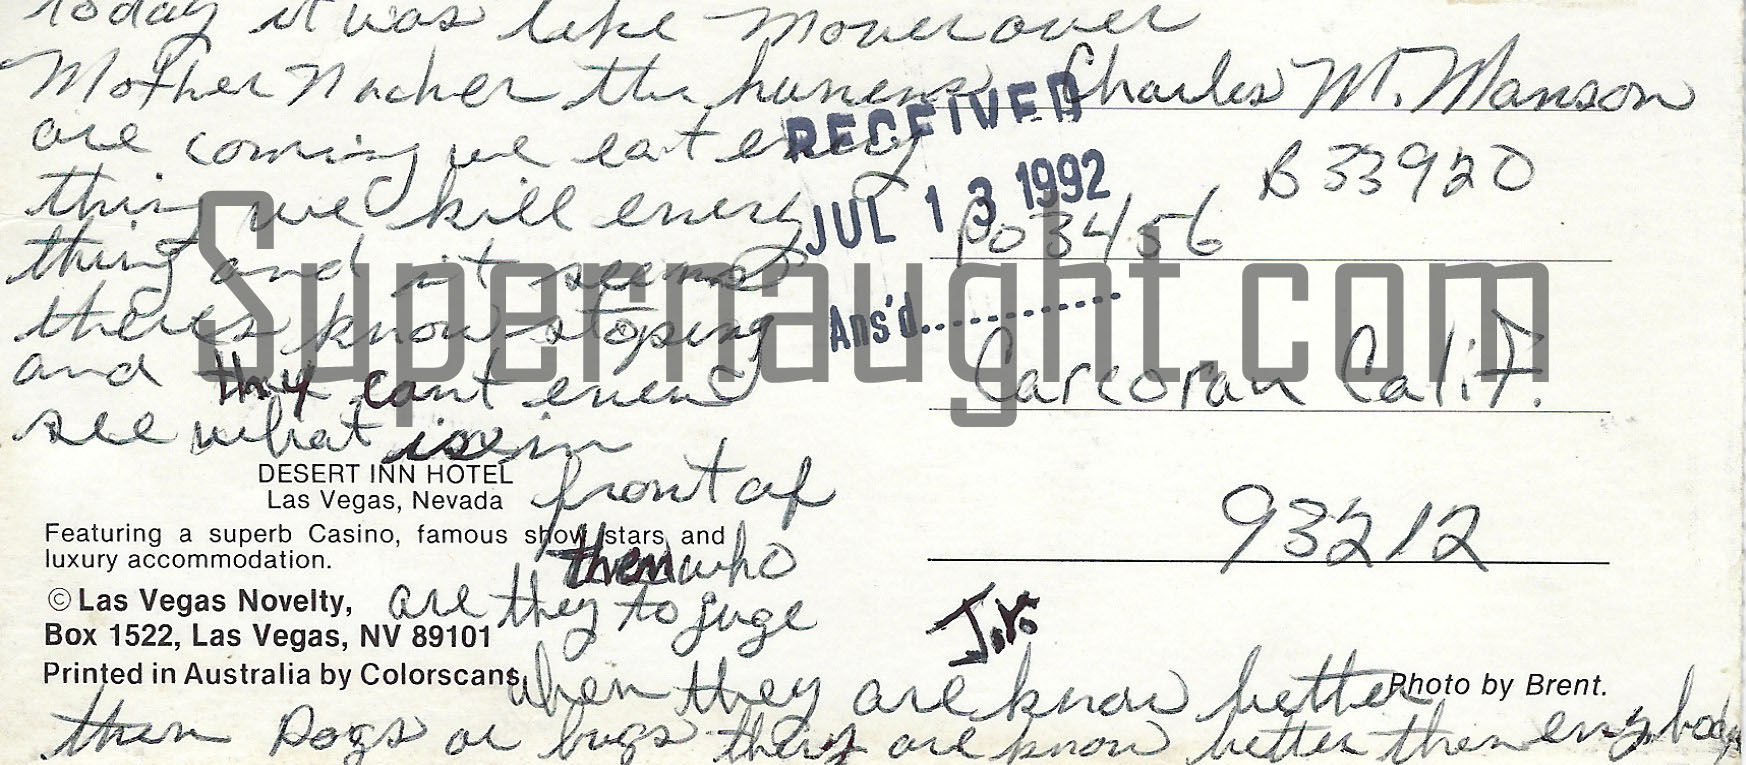 today it was like Moverover
Mother Nacher the humens
are coming we eat every
thing we kill every
thing and it seems
theres know stoping
and they cant even
see what is in
front of
them who
are they to juge
when they are know better
then Dogs or bugs they are know better then enybody
RECEIVED
JUL 13 1992
Ans'd..........
Charles M. Manson
B 33920
Po 3456
Corcoran Calif.
93212
DESERT INN HOTEL
Las Vegas, Nevada
Featuring a superb Casino, famous show stars and
luxury accommodation.
© Las Vegas Novelty,
Box 1522, Las Vegas, NV 89101
Printed in Australia by Colorscans.
Photo by Brent.
Supernaught.com